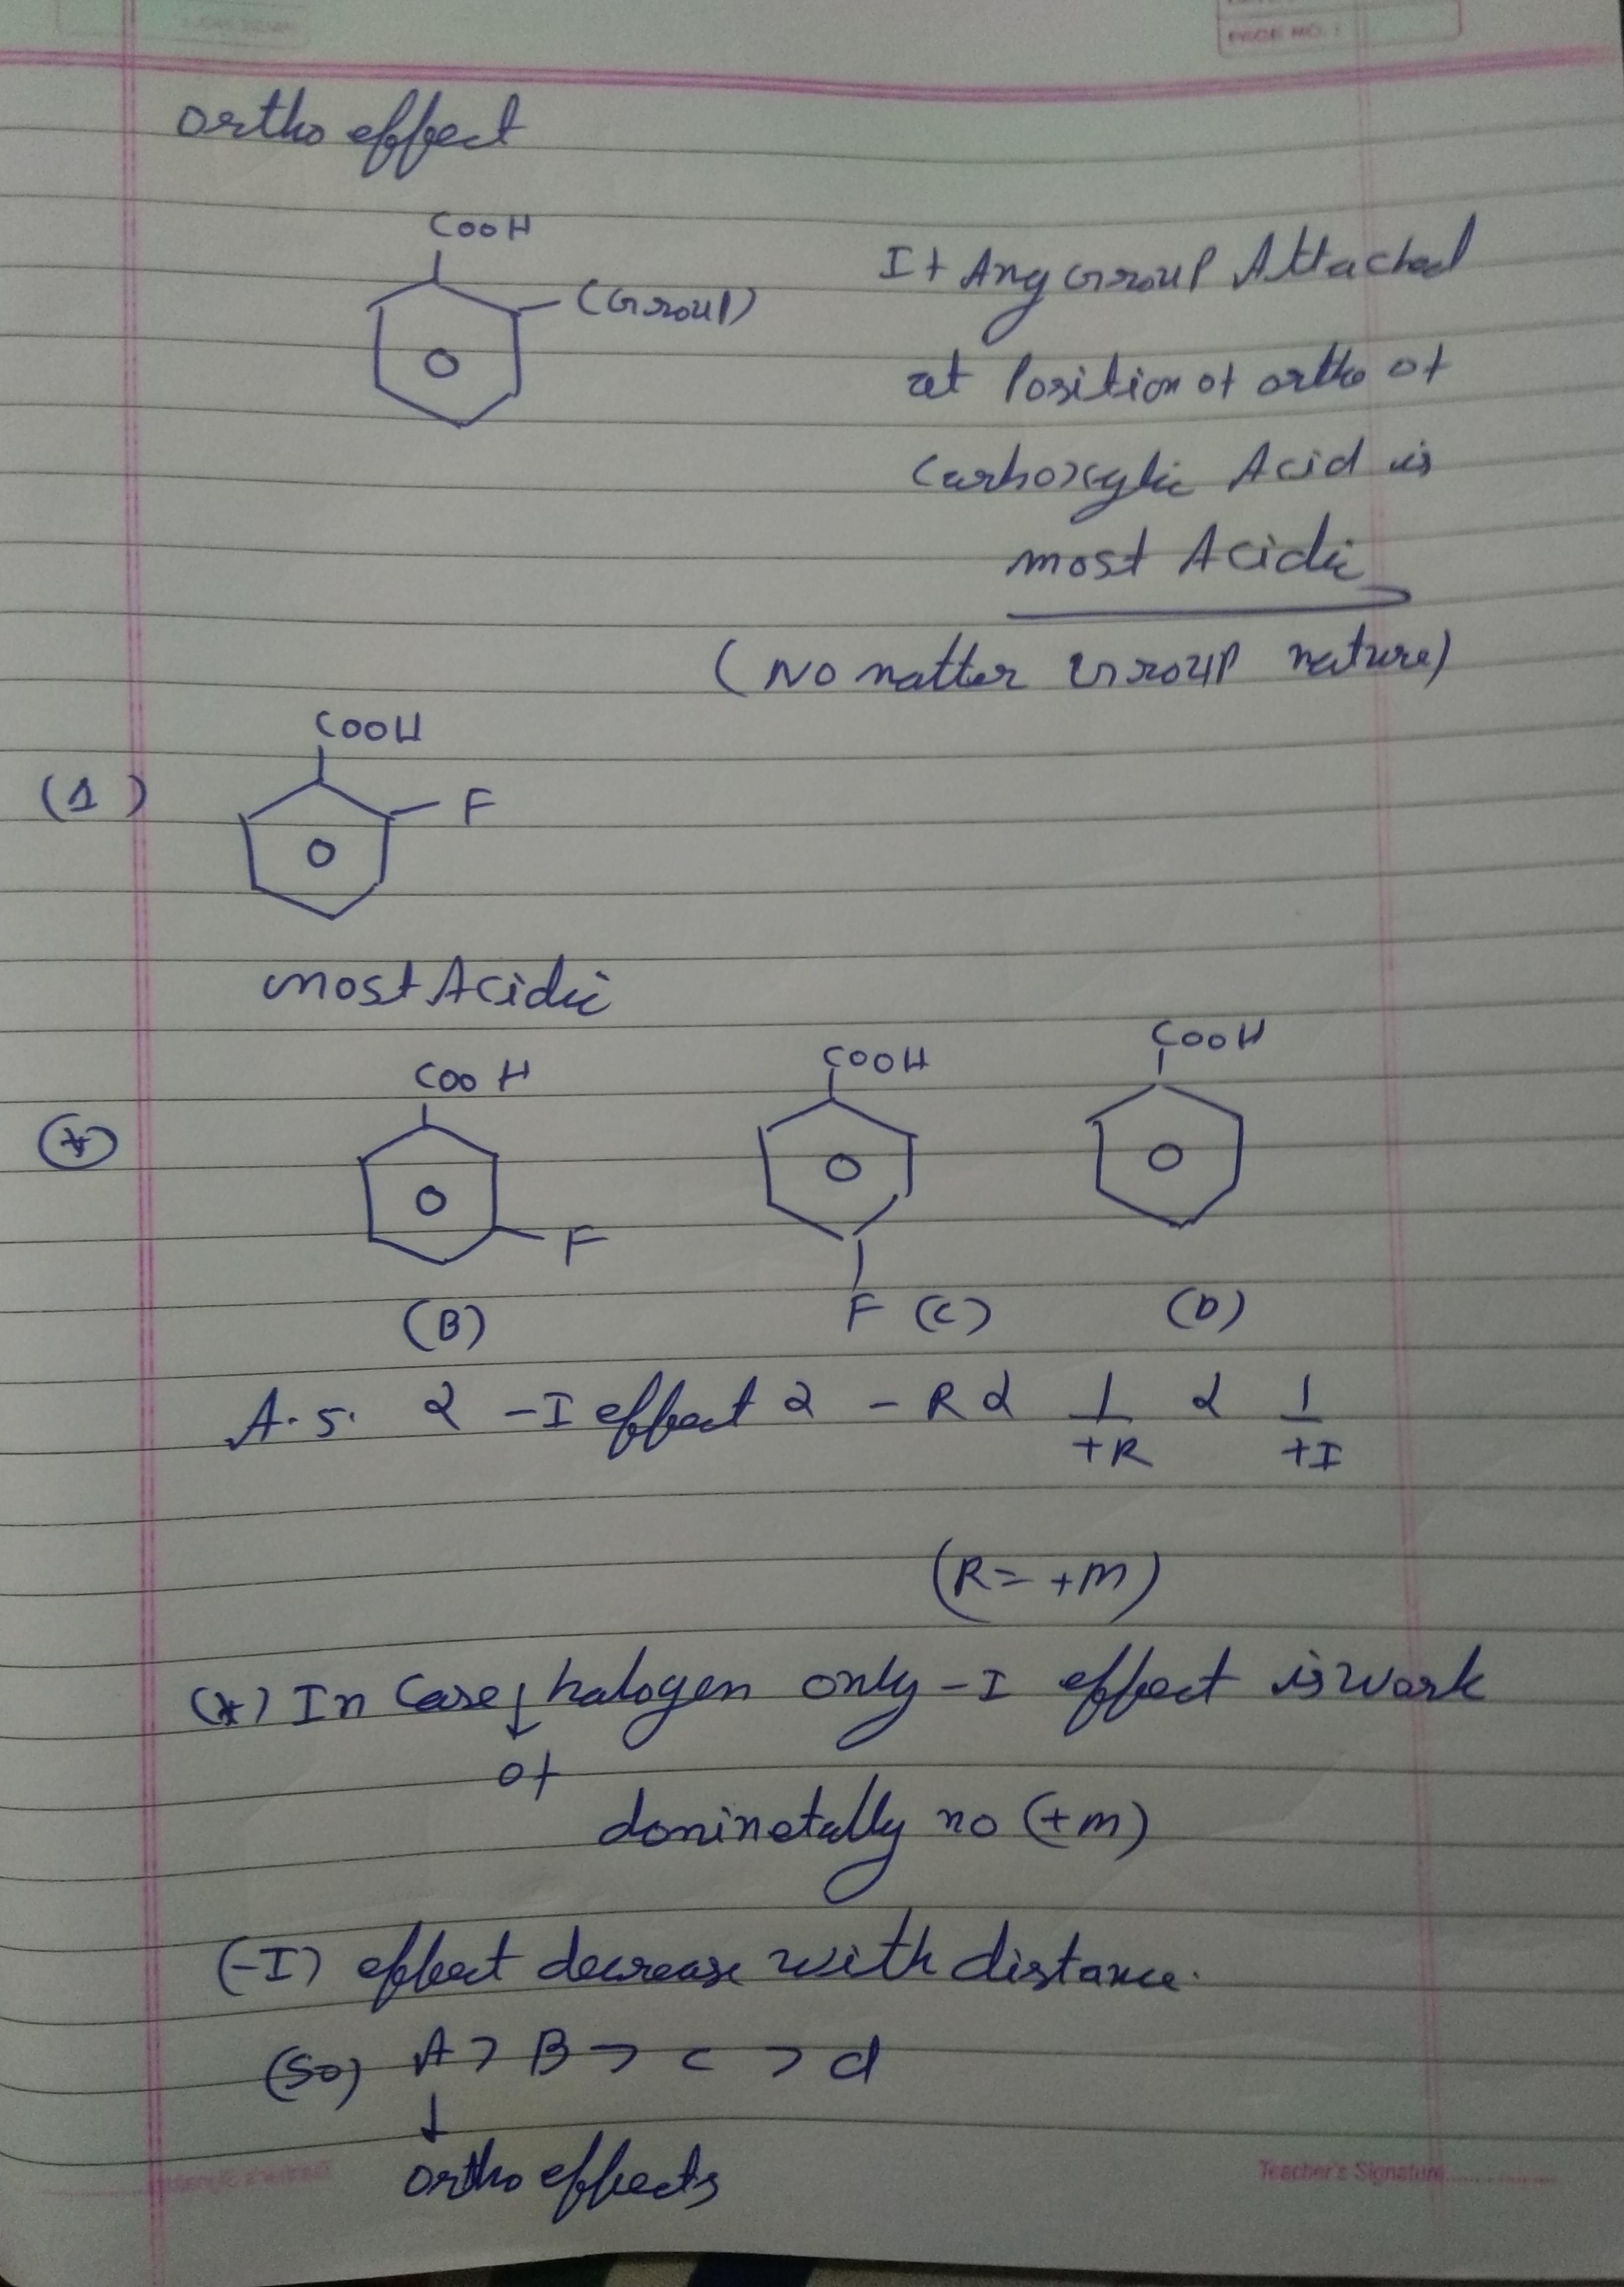 PAGE NO. :
ortho effect
COOH
(Group)
If Any Group Attached
at Position of ortho of
Carboxylic Acid is
most Acidic
(No matter Group nature)
COOH
(1)
F
most Acidic
COOH
COOH
COOH
F
F
(B)
(C)
(D)
A.S. α -I effect α -R α 1/+R α 1/+I
(R= +m)
(*) In Case ↓ halogen only -I effect is work
of
dominetally no (+m)
(-I) effect decrease with distance.
(So) A > B > c > d
↓
ortho effects
Teacher's Signature..............